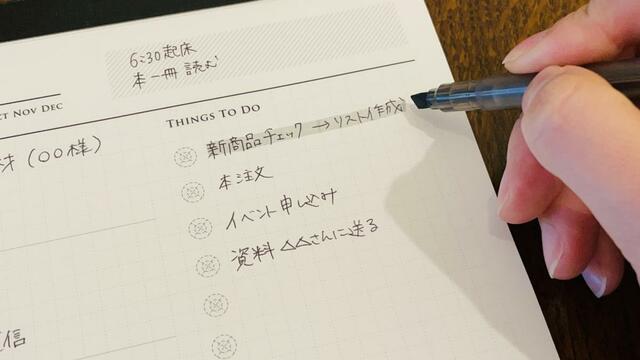 6:30起床
本一冊 読む
CT NOV DEC
THINGS TO DO
材(〇〇様)
新商品チェック → リスト作成
本注文
イベント申し込み
資料 △△さんに送る
信